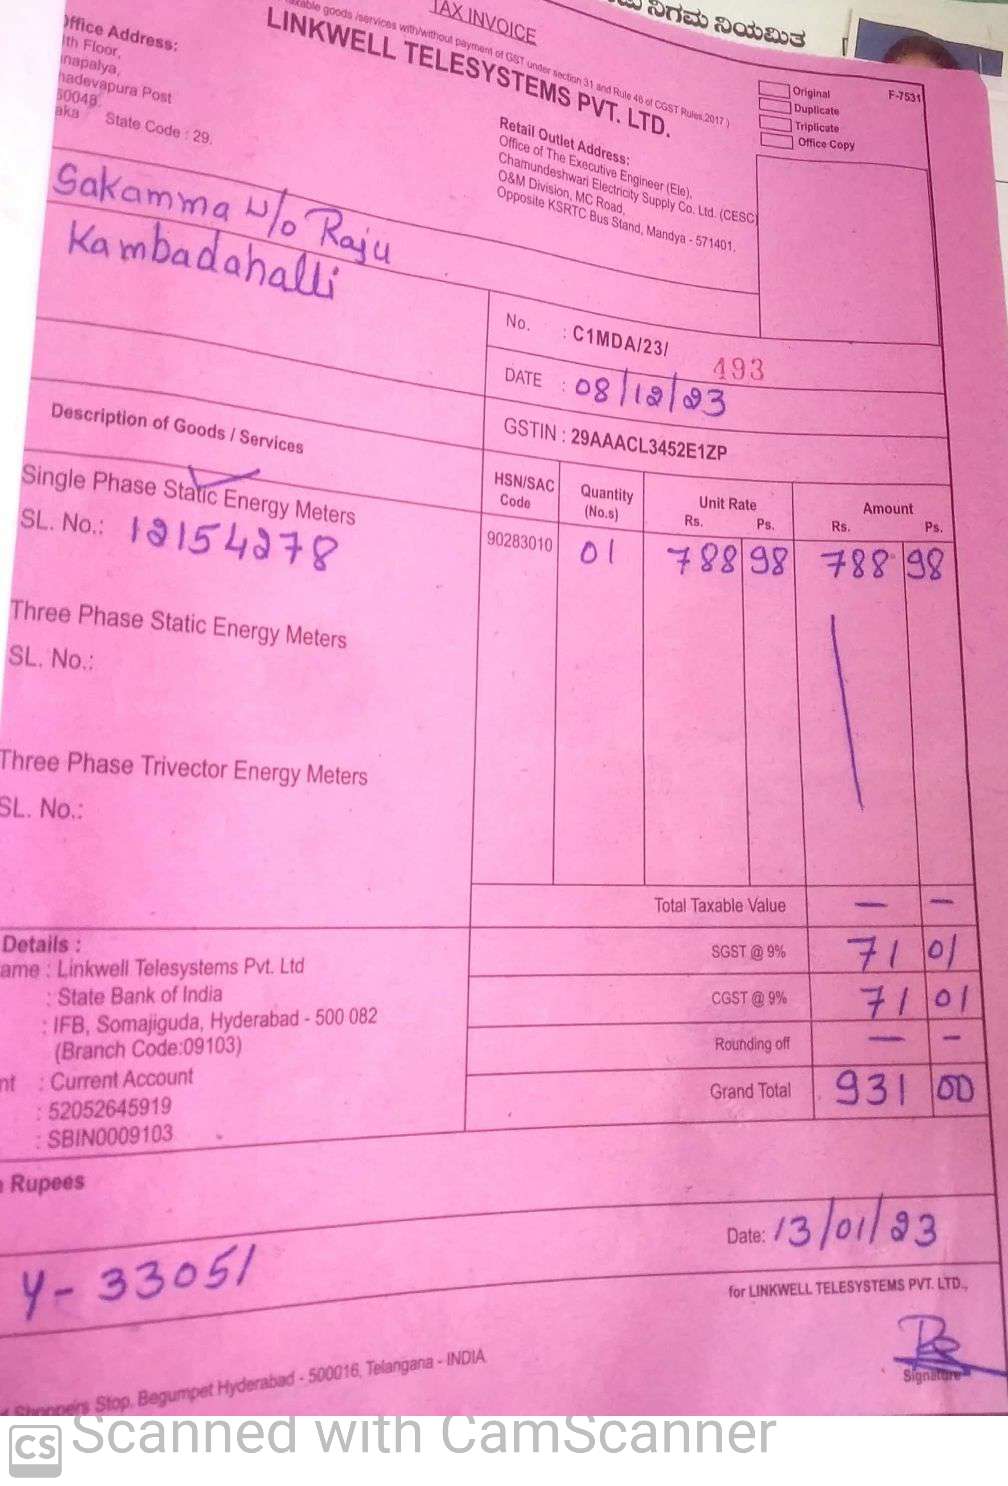 ನಿಗಮ ನಿಯಮಿತ
TAX INVOICE
taxable goods /services with/without payment of GST under section 31 and Rule 46 of CGST Rules,2017 )
LINKWELL TELESYSTEMS PVT. LTD.
Office Address:
th Floor,
napalya,
hadevapura Post
60048.
aka State Code : 29.
Retail Outlet Address:
Office of The Executive Engineer (Ele),
Chamundeshwari Electricity Supply Co. Ltd. (CESC)
O&M Division, MC Road,
Opposite KSRTC Bus Stand, Mandya - 571401.
Original
Duplicate
Triplicate
Office Copy
F-7531
Sakamma W/o Raju
Kambadahalli
No. : C1MDA/23/ 493
DATE : 08/12/23
GSTIN : 29AAACL3452E1ZP
Description of Goods / Services
HSN/SAC Code
Quantity (No.s)
Unit Rate
Rs. Ps.
Amount
Rs. Ps.
Single Phase Static Energy Meters
SL. No.: 12154278
90283010 01 788 98 788 98
Three Phase Static Energy Meters
SL. No.:
Three Phase Trivector Energy Meters
SL. No.:
Total Taxable Value — —
SGST @ 9% 71 01
CGST @ 9% 71 01
Rounding off — –
Grand Total 931 00
Details :
ame : Linkwell Telesystems Pvt. Ltd
: State Bank of India
: IFB, Somajiguda, Hyderabad - 500 082
(Branch Code:09103)
nt : Current Account
: 52052645919
: SBIN0009103
Rupees
Date: 13/01/23
Y- 33051
for LINKWELL TELESYSTEMS PVT. LTD.,
Signature
Shoppers Stop, Begumpet Hyderabad - 500016, Telangana - INDIA
CS Scanned with CamScanner